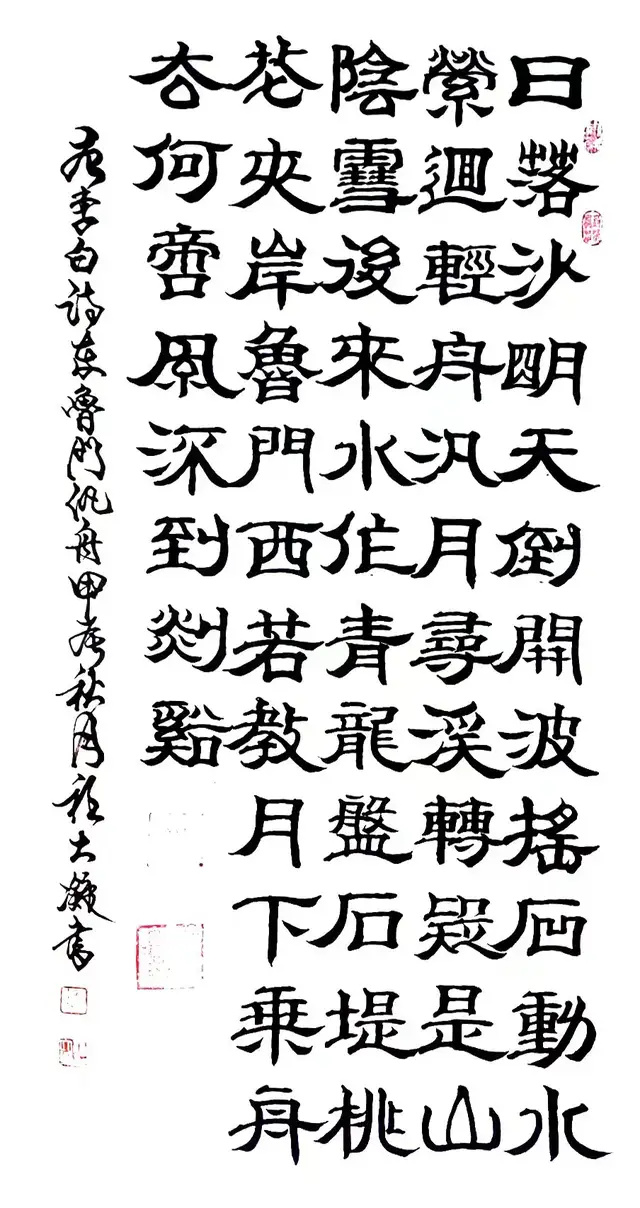 日落沙明天倒開波搖石動水
縈迴輕舟汎月尋溪轉疑是山
陰雪後來水作青龍盤石堤桃
花夾岸魯門西若教月下乘舟
去何啻風流到剡谿
右李白诗东鲁門汎舟甲辰秋月大書